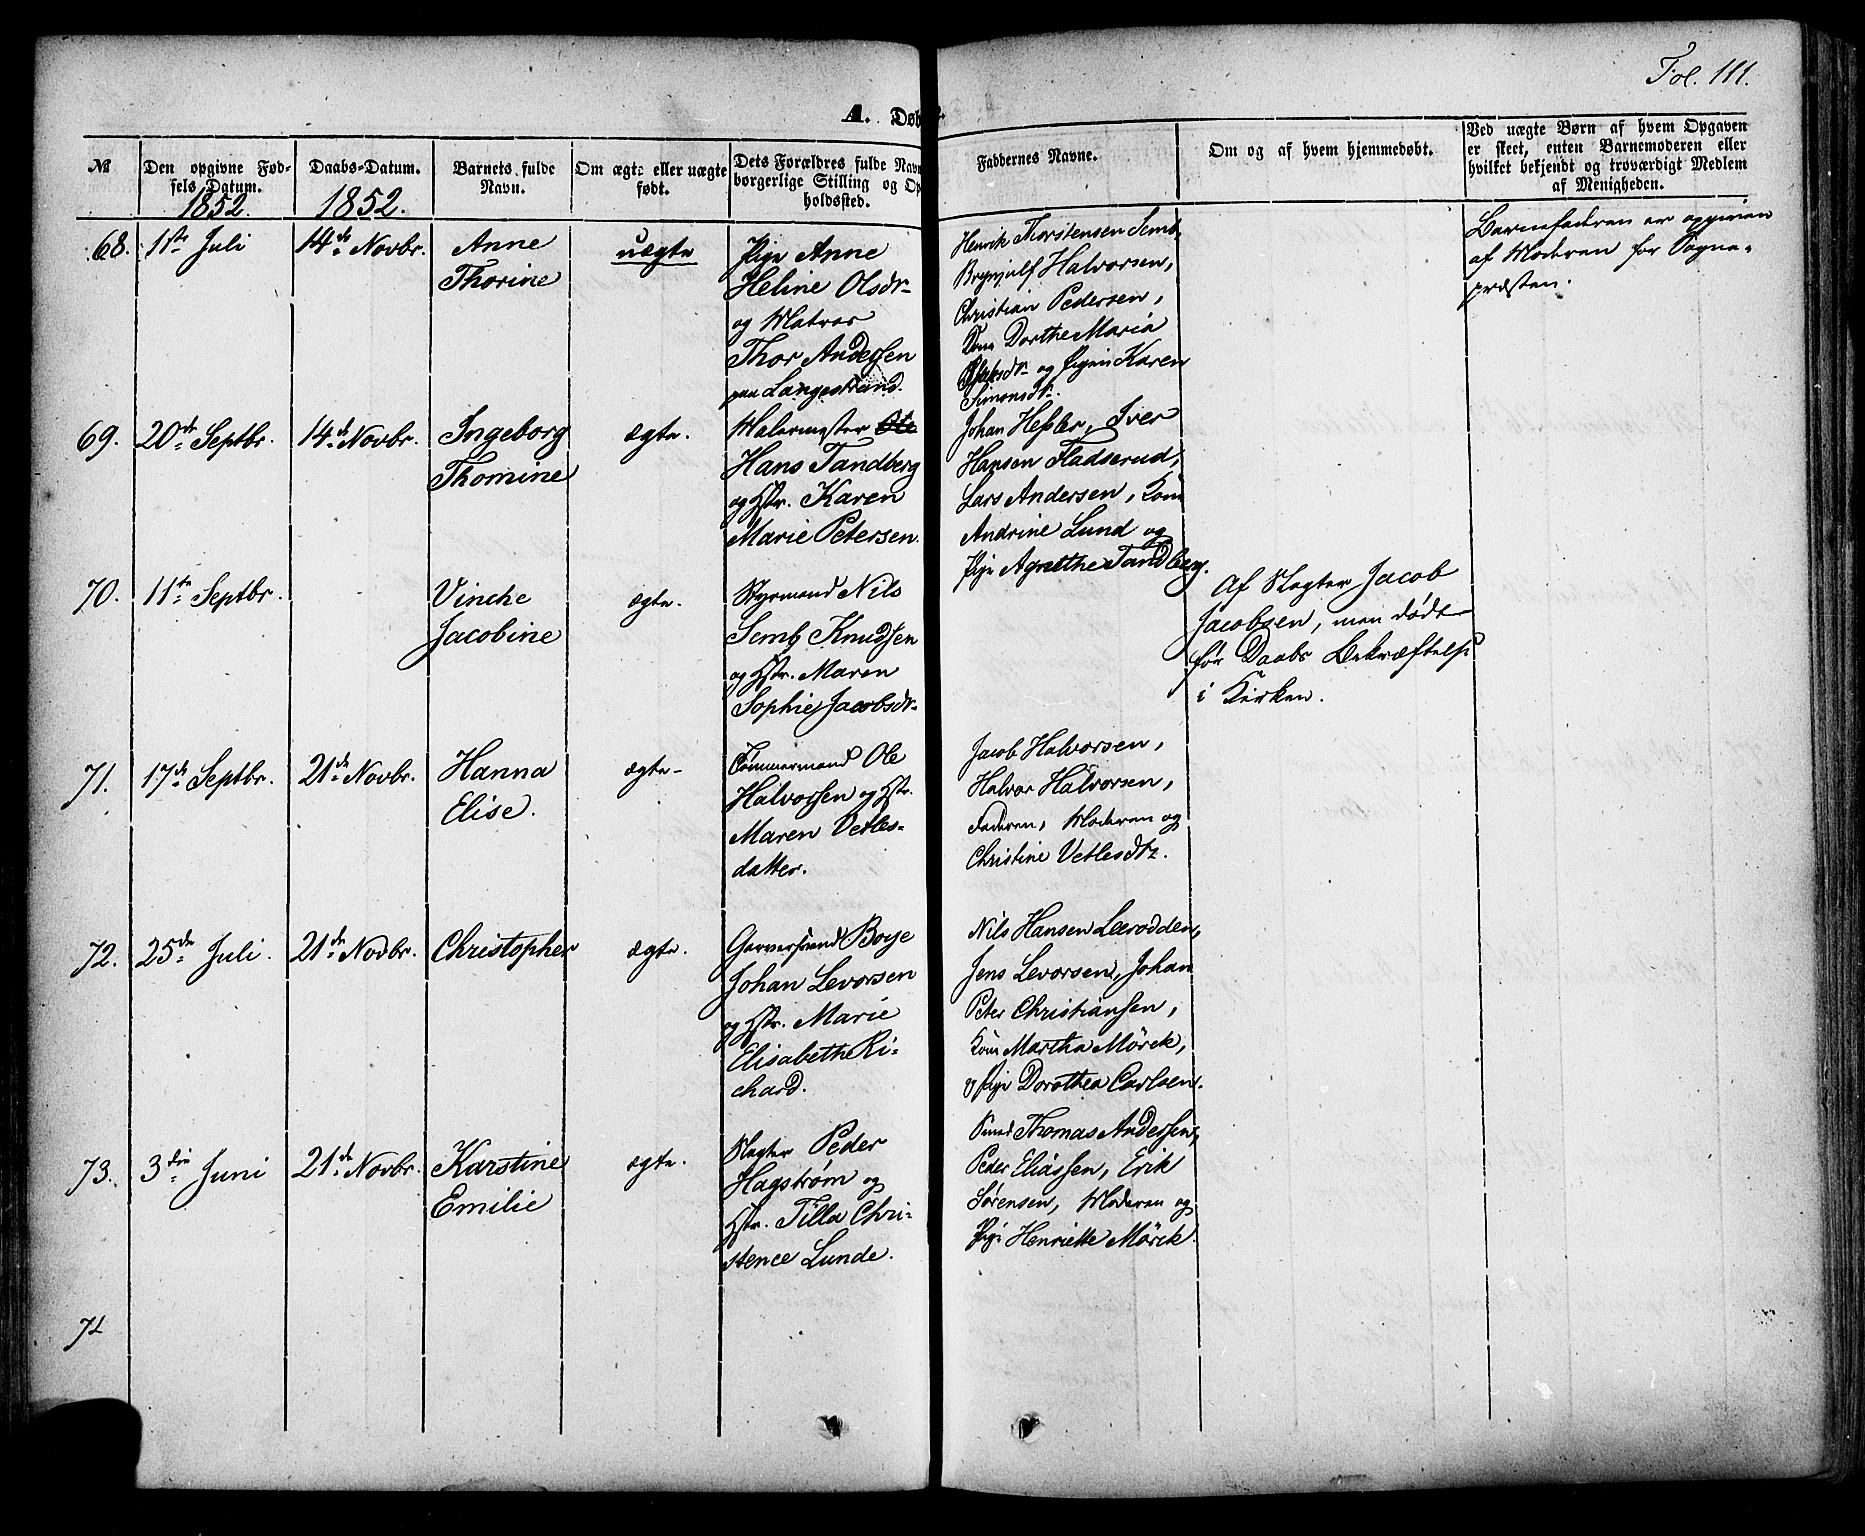 Fol. 111.
A. Døbte.
№
Den opgivne Fød-
sels Datum.
1852.
Daabs-Datum.
1852.
Barnets fulde
Navn.
Om ægte eller uægte
født.
Dets Forældres fulde Navn
borgerlige Stilling og Op
holdssted.
Faddernes Navne.
Om og af hvem hjemmedøbt.
Ved uægte Børn af hvem Opgaven
er skeet, enten Barnemoderen eller
hvilket bekjendt og troværdigt Medlem
af Menigheden.
68.
11te Juli
14de Novbr.
Anne
Thorine
uægte
Pige Anne
Heline Olsdr
og Matros
Thor Andersen
paa Langestrand.
Henrik Thorstensen Semb,
Brynjulf Halvorsen,
Christian Pedersen,
Kone Dorthe Maria
og Pigen Karen
Simonsdr.
Barnefaderen er opgiven
af Moderen for Sogne-
præsten.
69.
20de Septbr.
14de Novbr.
Ingeborg
Thomine
ægte.
Malermester Ole
Hans Tandberg
og Hstr. Karen
Marie Petersen.
Johan Hesler, Iver
Hansen Fladserud,
Lars Andersen, Kone
Andrine Lund og
Pige Agnethe Tandberg.
70.
11te Septbr.
Vinche
Jacobine
ægte.
Styrmand Nils
Semb Knudsen
og Hstr. Maren
Sophie Jacobsdr
Af Slagter Jacob
Jacobsen, men døde
før Daabs Bekræftelse
i Kirken.
71.
17de Septbr.
21de Novbr.
Hanna
Elise.
ægte
Tømmermand Ole
Halvorsen og Hstr.
Maren Vetles-
datter.
Jacob Halvorsen,
Halvor Halvorsen,
Faderen, Moderen og
Christine Vetlesdtr.
72.
25de Juli.
21de Novbr.
Christopher
ægte.
Garversvend Boye
Johan Levorsen
og Hstr. Marie
Elisabeth Ri-
chard.
Nils Hansen Lærodden,
Jens Levorsen, Johan
Peter Christiansen,
Kone Martha Mörck,
Pige Dorothea Carlsen.
73.
3die Juni
21de Novbr.
Karstine
Emilie
ægte.
Slagter Peder
Hagstrøm og
Hstr. Tilla Chri-
stence Lunde.
Thomas Andersen,
Peder Eliassen, Erik
Sørensen, Moderen og
Pige Henriette Mörck.
74